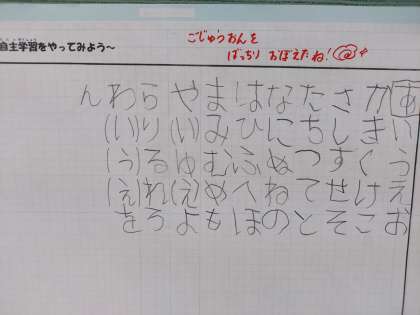 自主学習をやってみよう～
ごじゅうおんを
ばっちり おぼえたね!
あいうえお
かきくけこ
さしすせそ
たちつてと
なにぬねの
はひふへほ
まみむめも
や(い)ゆ(え)よ
らりるれろ
わ(い)(う)(え)を
ん